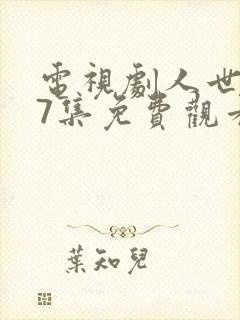 電視劇人世
7集免費觀看
葉知兒